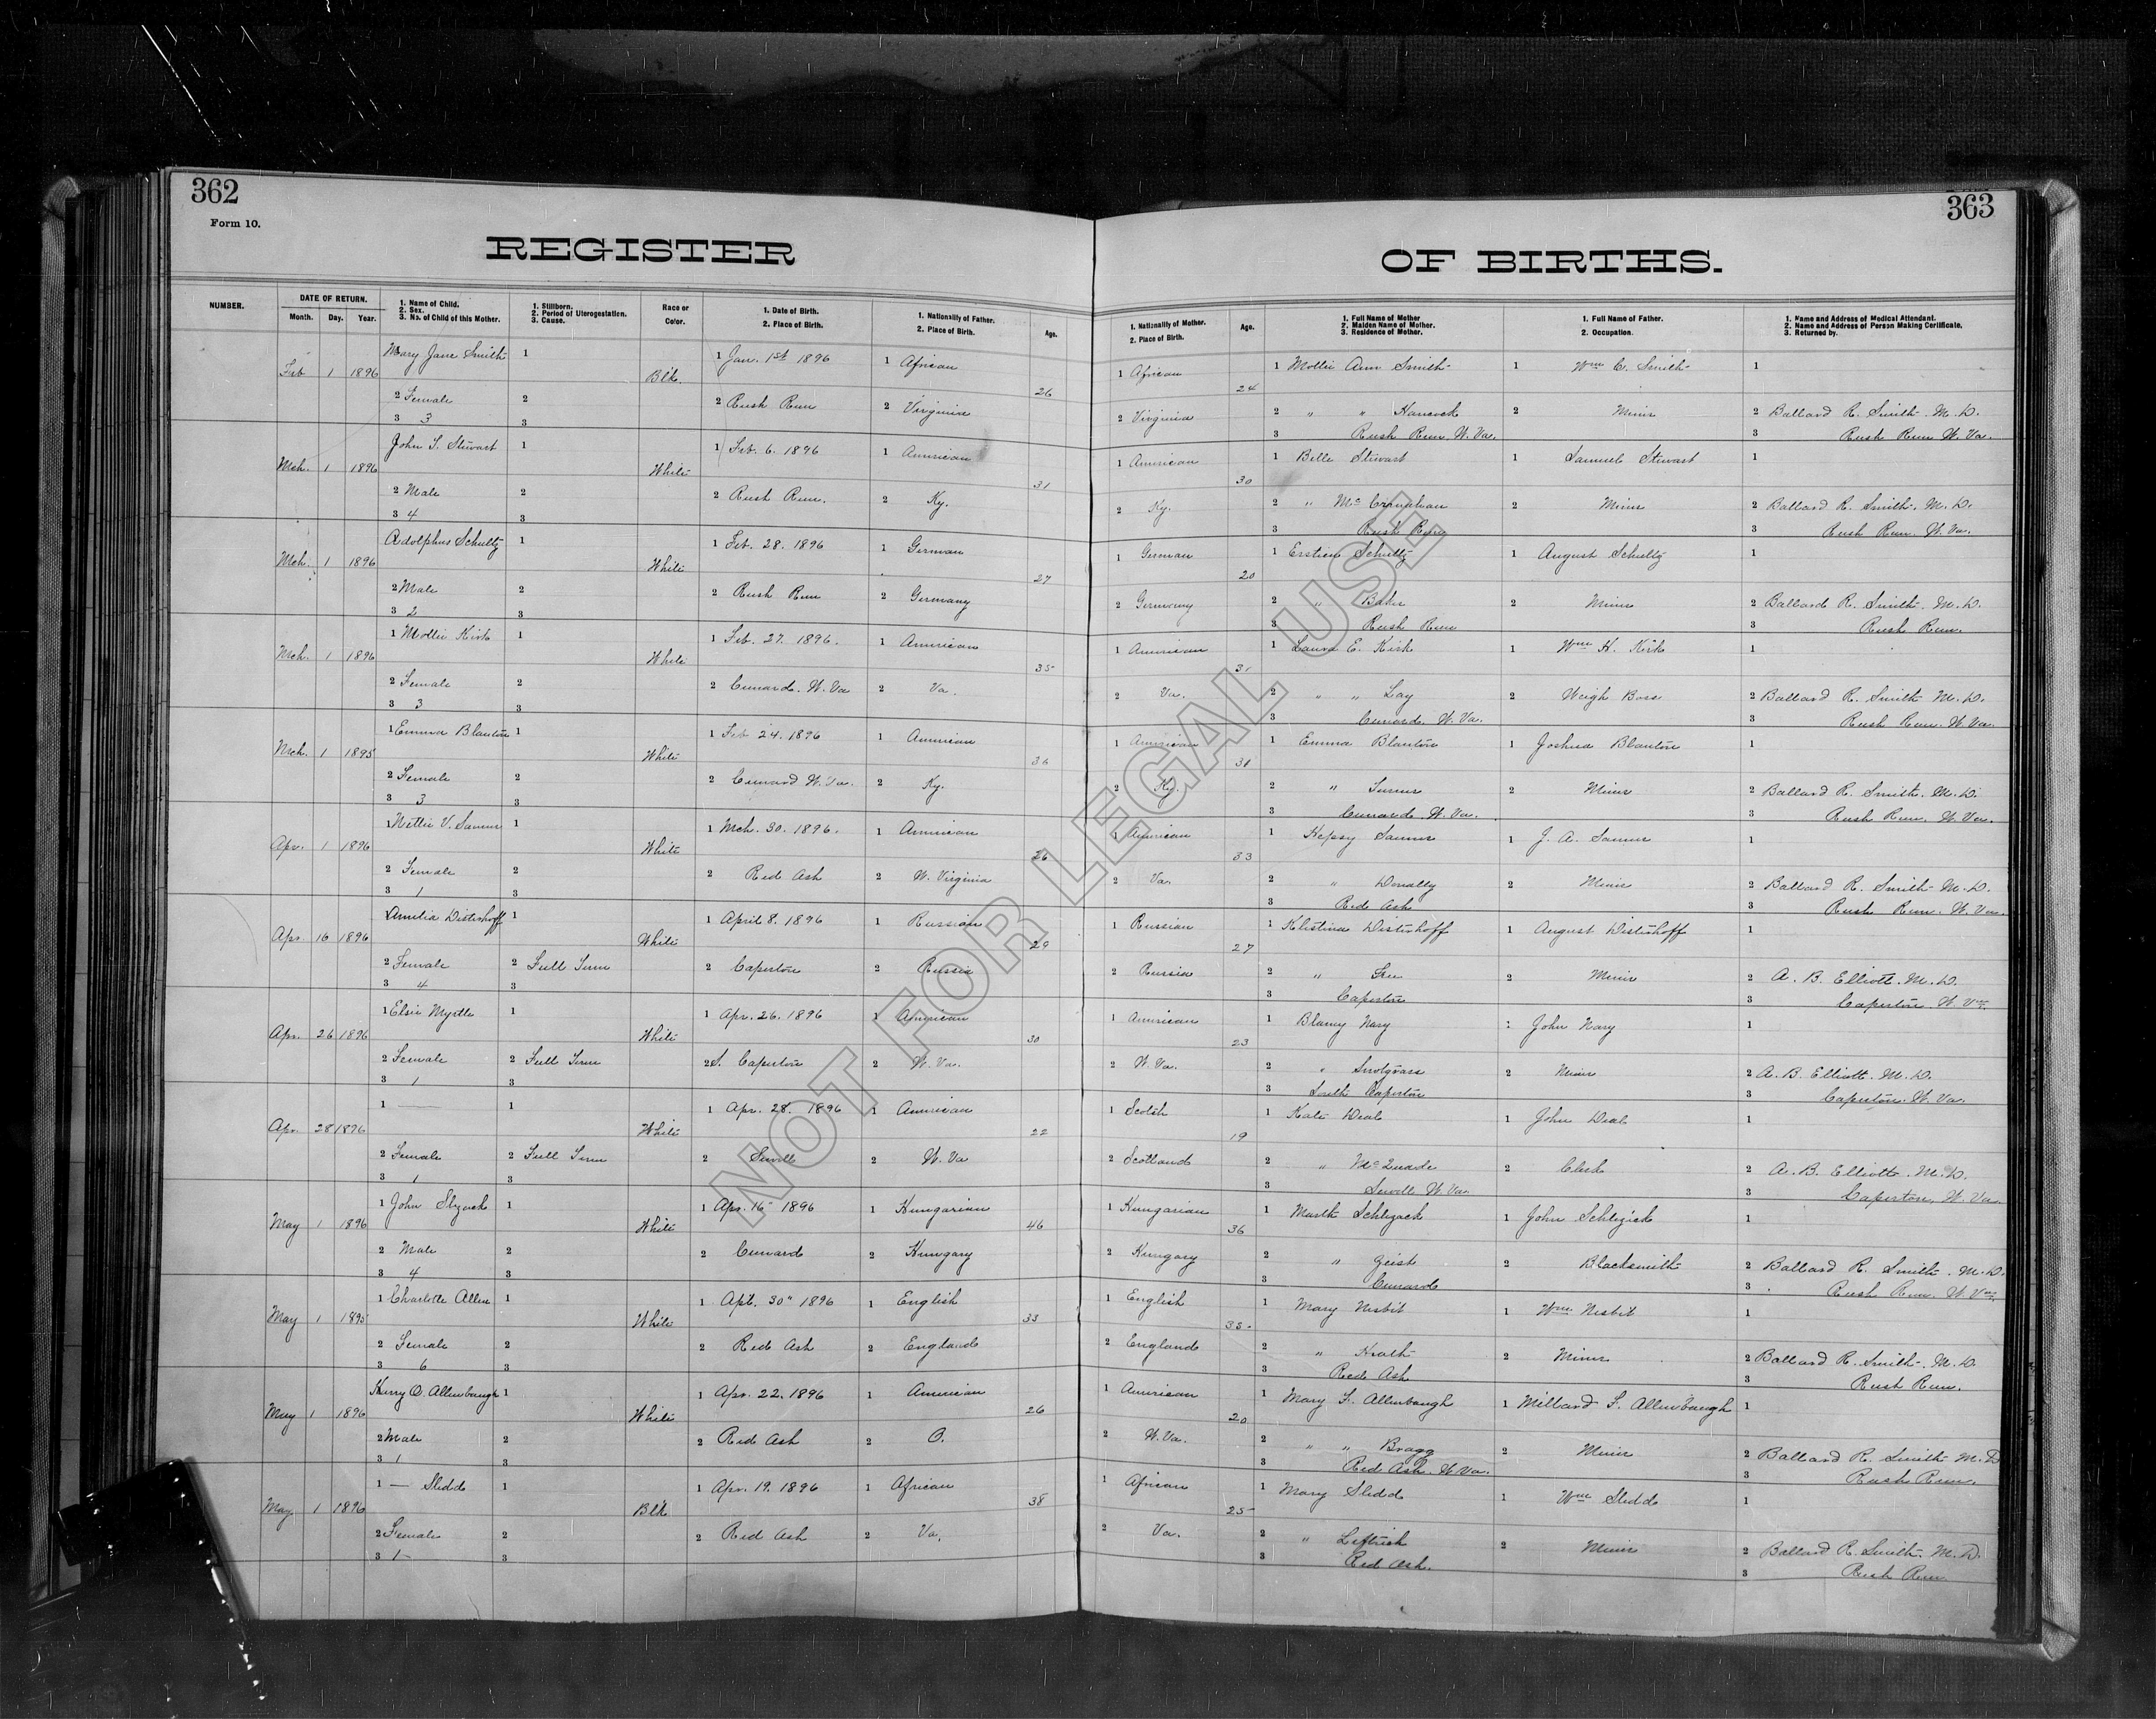 362
363
Form 10.
REGISTER OF BIRTHS.
NUMBER.
DATE OF RETURN.
Month. Day. Year.
1. Name of Child.
2. Sex.
3. No. of Child of this Mother.
1. Stillborn.
2. Period of Uterogestation.
3. Cause.
Race or Color.
1. Date of Birth.
2. Place of Birth.
1. Nationality of Father.
2. Place of Birth.
Age.
1. Nationality of Mother.
2. Place of Birth.
Age.
1. Full Name of Mother
2. Maiden Name of Mother.
3. Residence of Mother.
1. Full Name of Father.
2. Occupation.
1. Name and Address of Medical Attendant.
2. Name and Address of Person Making Certificate.
3. Returned by.
Mary Jane Smith 1 1 Jan. 1st 1896 1 African 1 African 1 Mollie Ann Smith 1 Wm C. Smith 1
Feb 1 1896 Blk. 26 24
2 Female 2 2 Rush Run 2 Virginia 2 Virginia 2 " " Hancock 2 Miner 2 Ballard R. Smith. M.D.
3 3 3 3 Rush Run. W. Va. 3 Rush Run W. Va.
John S. Stewart 1 1 Feb. 6. 1896 1 American 1 American 1 Belle Stewart 1 Samuel Stewart 1
Mch. 1 1896 White 31 30
2 Male 2 2 Rush Run. 2 Ky. 2 Ky. 2 " 2 Miner 2 Ballard R. Smith. M.D.
3 4 3 3 Rush Run 3 Rush Run. W. Va.
Adolphus Schultz 1 1 Feb. 28. 1896 1 German 1 German 1 Schultz 1 August Schultz 1
Mch. 1 1896 White 27 20
2 Male 2 2 Rush Run 2 Germany 2 Germany 2 " 2 Miner 2 Ballard R. Smith. M.D.
3 2 3 3 Rush Run 3 Rush Run.
1 Mollie Kirk 1 1 Feb. 27. 1896. 1 American 1 American 1 Laura E. Kirk 1 Wm H. Kirk 1
Mch. 1 1896 White 35 31
2 Female 2 2 Cunard. W. Va 2 Va. 2 Va. 2 " " Lay 2 Weigh Boss 2 Ballard R. Smith M.D.
3 3 3 3 Cunard. W. Va. 3 Rush Run. W. Va.
1 Emma Blanton 1 1 Feb 24. 1896 1 American 1 American 1 Emma Blanton 1 Joshua Blanton 1
Mch. 1 1895 White 36 31
2 Female 2 2 Cunard W. Va. 2 Ky. 2 Ky. 2 " 2 Miner 2 Ballard R. Smith. M.D.
3 3 3 3 Cunard. W. Va. 3 Rush Run. W. Va.
1 Nettie V. 1 1 Mch. 30. 1896. 1 American 1 American 1 Hepsy 1 J. A. 1
Apr. 1 1896 White 26 33
2 Female 2 2 Red Ash 2 W. Virginia 2 Va. 2 " Donally 2 Miner 2 Ballard R. Smith M.D.
3 1 3 3 Red Ash 3 Rush Run. W. Va.
Amelia Disterhoff 1 1 April 8. 1896 1 Russian 1 Russian 1 Khistina Disterhoff 1 August Disterhoff 1
Apr. 16 1896 White 29 27
2 Female 2 Full Term 2 Caperton 2 Russia 2 Russia 2 " 2 Miner 2 A. B. Elliott. M.D.
3 4 3 3 Caperton 3 Caperton W. Va.
1 Elsie Myrtle 1 1 Apr. 26. 1896 1 American 1 American 1 Nary 1 John Nary 1
Apr. 26 1896 White 30 23
2 Female 2 Full Term 2 S. Caperton 2 W. Va. 2 W. Va. 2 " 2 Miner 2 A. B. Elliott. M.D.
3 1 3 3 South Caperton 3 Caperton. W. Va.
1 — 1 1 Apr. 28. 1896 1 American 1 Scotch 1 Kate Deal 1 John Deal 1
Apr. 28 1896 White 22 19
2 Female 2 Full Term 2 Sewell 2 W. Va 2 Scotland 2 " McQuade 2 Clerk 2 A. B. Elliott. M.D.
3 1 3 3 Sewell W. Va. 3 Caperton. W. Va.
1 John 1 1 Apr. 16" 1896 1 Hungarian 1 Hungarian 1 Schlizack 1 John Schlizick 1
May 1 1896 White 46 36
2 Male 2 2 Cunard 2 Hungary 2 Hungary 2 " Geist 2 Blacksmith 2 Ballard R. Smith. M.D.
3 4 3 3 Cunard 3 Rush Run. W. Va.
1 Charlotte Allen 1 1 Apl. 30" 1896 1 English 1 English 1 Mary Nesbit 1 Wm. Nesbit 1
May 1 1895 White 33 35
2 Female 2 2 Red Ash 2 England 2 England 2 " Heath 2 Miner 2 Ballard R. Smith. M.D
3 6 3 3 Red Ash 3 Rush Run.
Henry O. Allenbaugh 1 1 Apr. 22. 1896 1 American 1 American 1 Mary F. Allenbaugh 1 Millard F. Allenbaugh 1
May 1 1896 White 26 20
2 Male 2 2 Red Ash 2 O. 2 W. Va. 2 " " Bragg 2 Miner 2 Ballard R. Smith M.D
3 1 3 3 Red Ash. W Va. 3 Rush Run.
1 — Sledd 1 1 Apr. 19. 1896 1 African 1 African 1 Mary Sledd 1 Wm Sledd 1
May 1 1896 Blk 38 25
2 Female 2 2 Red Ash 2 Va. 2 Va. 2 " Leftrich 2 Miner 2 Ballard R. Smith. M.D.
3 1 3 3 Red Ash. 3 Rush Run
NOT FOR LEGAL USE